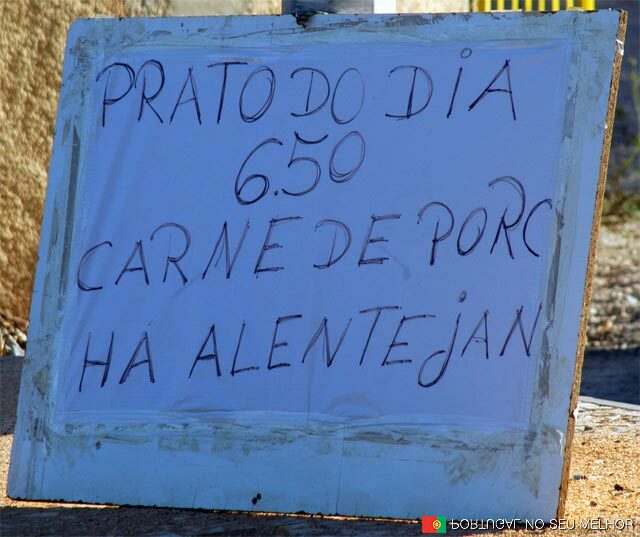 PRATO DO DIA
6.50
CARNE DE PORC
HA ALENTEJAN
PORTUGAL NO SEU MELHOR